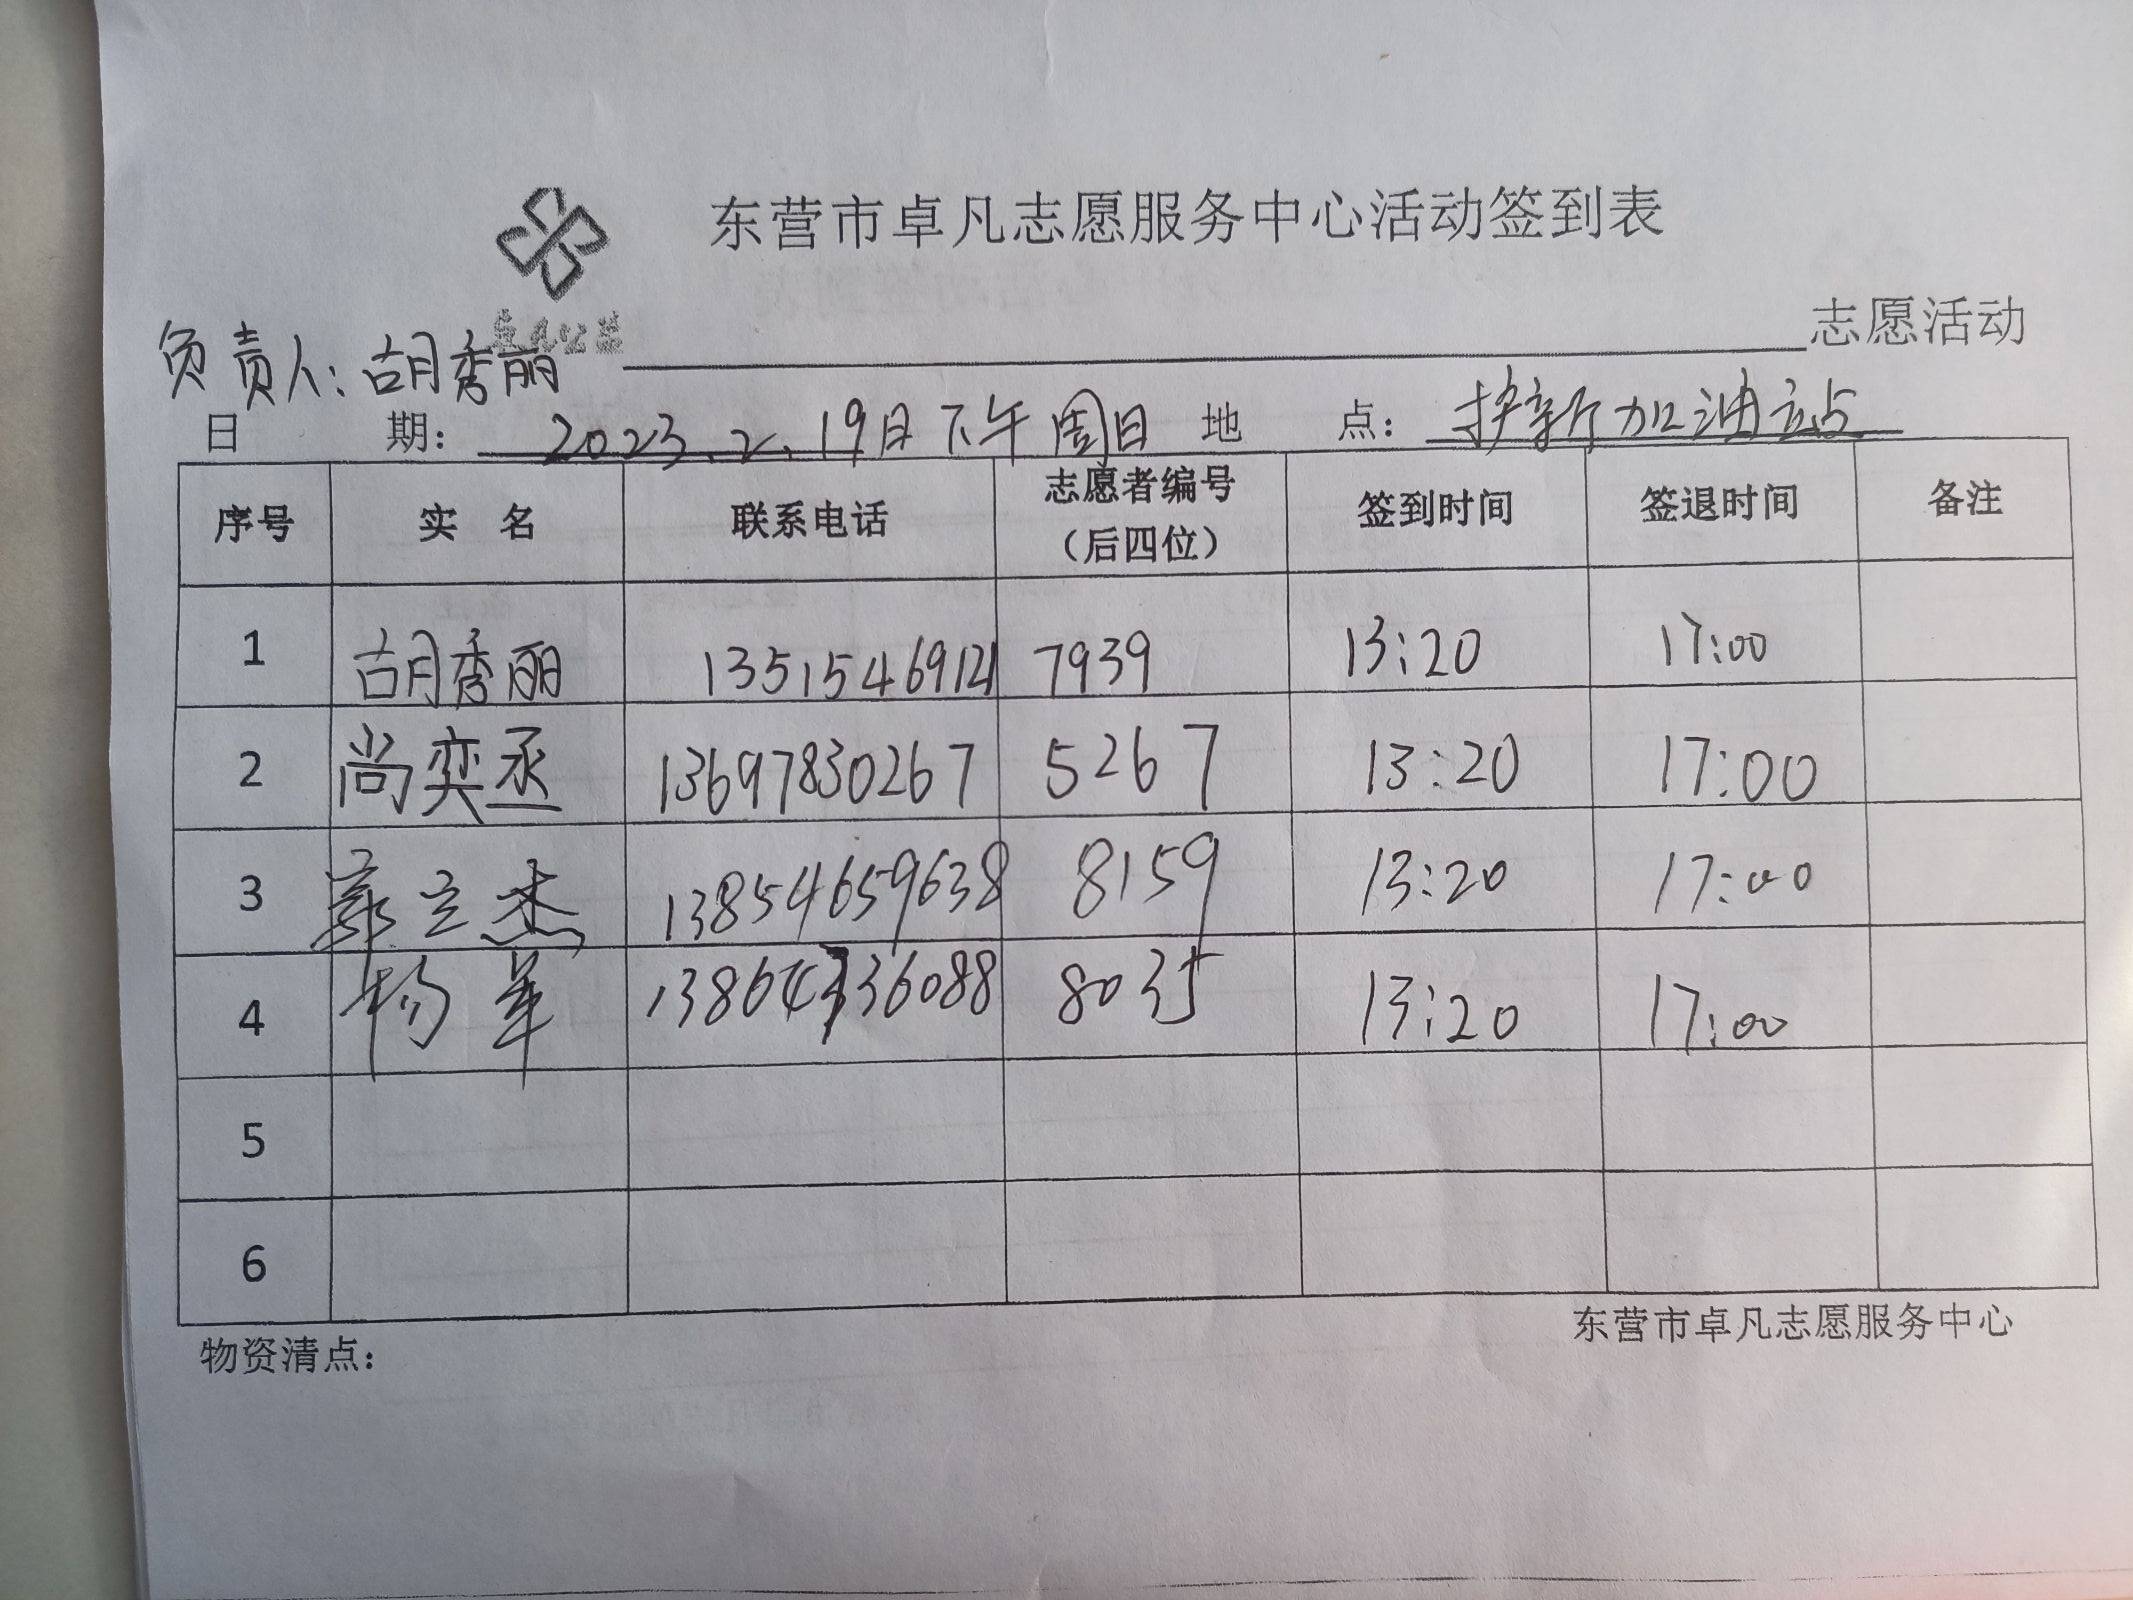 东营市卓凡志愿服务中心活动签到表
卓凡公益
志愿活动
负责人:胡秀丽
日 期: 2023.2.19日下午周日 地 点: 护新加油站
序号 实 名 联系电话 志愿者编号（后四位） 签到时间 签退时间 备注
1 胡秀丽 13515469121 7939 13:20 17:00
2 尚奕丞 13697830267 5267 13:20 17:00
3 郭立杰 13854659638 8159 13:20 17:00
4 杨军 80 13:20 17:00
5
6
东营市卓凡志愿服务中心
物资清点：